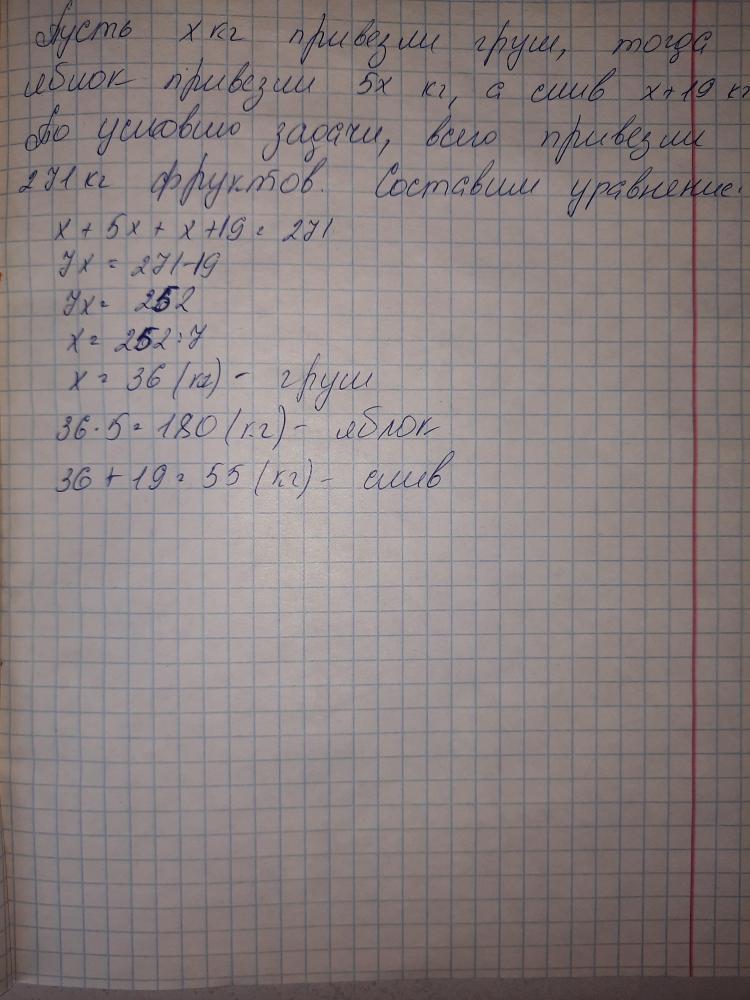 Пусть x кг привезли груш, тогда
яблок привезли 5x кг, а слив x+19 кг
По условию задачи, всего привезли
271 кг фруктов. Составим уравнение:
x + 5x + x + 19 = 271
7x = 271-19
7x = 252
x = 252:7
x = 36 (кг) - груш
36·5 = 180 (кг) - яблок
36 + 19 = 55 (кг) - слив